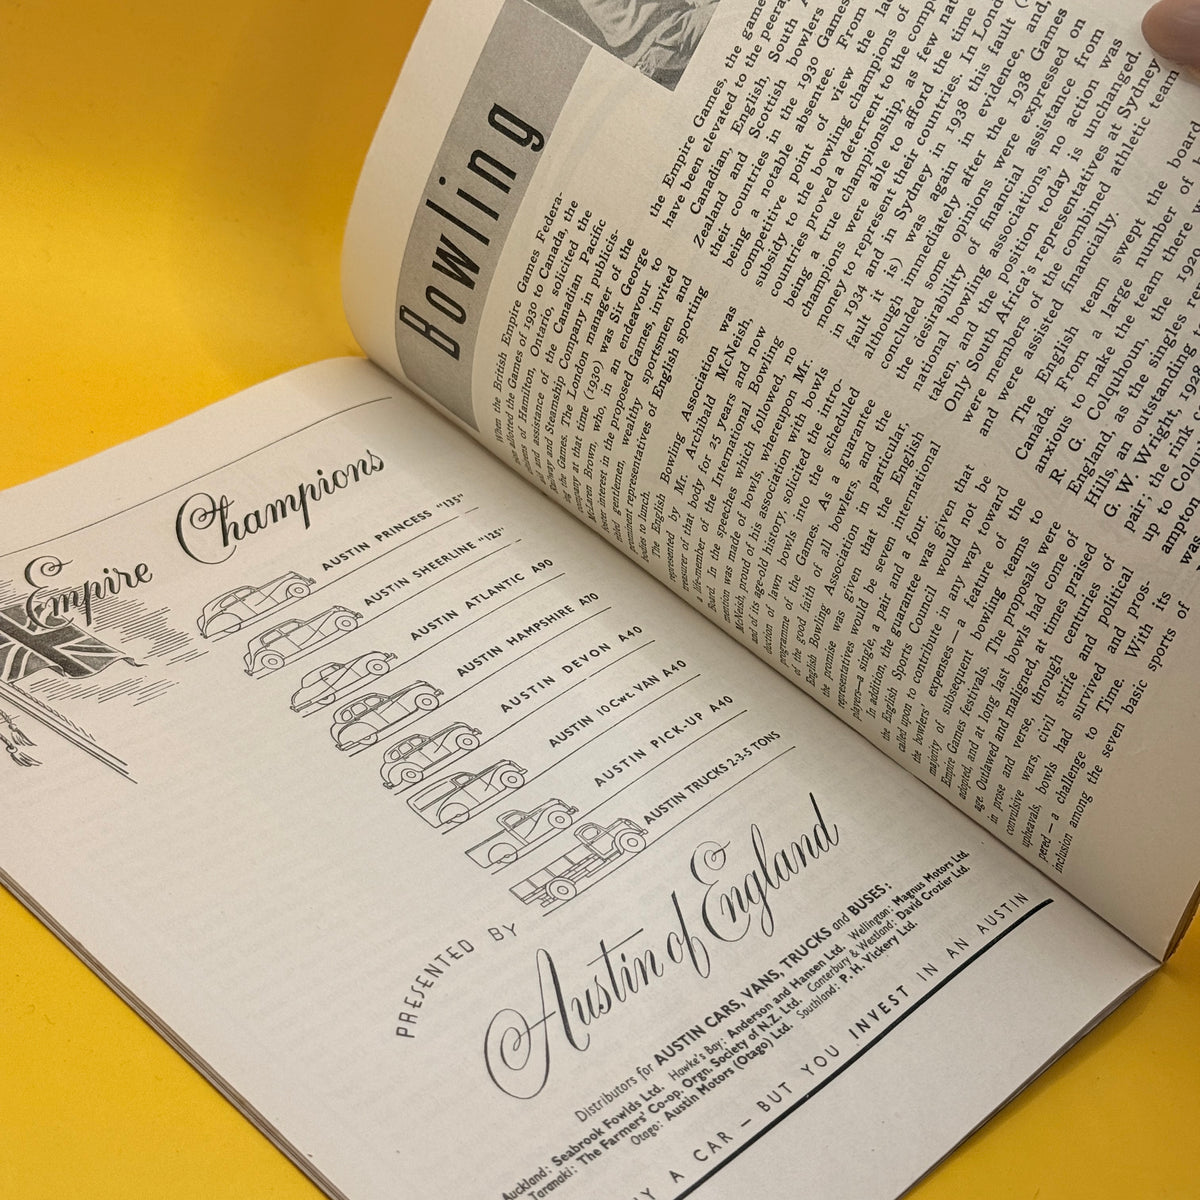 Empire Champions
AUSTIN PRINCESS "135"
AUSTIN SHEERLINE "125"
AUSTIN ATLANTIC A90
AUSTIN HAMPSHIRE A70
AUSTIN DEVON A40
AUSTIN 10Cwt. VAN A40
AUSTIN PICK-UP A40
AUSTIN TRUCKS 2-3-5 TONS
PRESENTED BY
Austin of England
Distributors for AUSTIN CARS, VANS, TRUCKS and BUSES:
Auckland: Seabrook Fowlds Ltd. Hawke's Bay: Anderson and Hansen Ltd. Wellington: Magnus Motors Ltd.
Taranaki: The Farmers' Co-op. Orgn. Society of N.Z. Ltd. Canterbury & Westland: David Crozier Ltd.
Otago: Austin Motors (Otago) Ltd. Southland: P. H. Vickery Ltd.
A CAR — BUT YOU INVEST IN AN AUSTIN
Bowling
When the British Empire Games Federa-
allotted the Games of 1930 to Canada, the
of Hamilton, Ontario, solicited the
and assistance of the Canadian Pacific
Railway and Steamship Company in publicis-
ing the Games. The London manager of the
company at that time (1930) was Sir George
McLaren Brown, who, in an endeavour to
interest in the proposed Games, invited
gentlemen, wealthy sportsmen and
prominent representatives of English sporting
bodies to lunch.
The English Bowling Association was
represented by Mr. Archibald McNeish,
treasurer of that body for 25 years and now
a life-member of the International Bowling
Board. In the speeches which followed, no
mention was made of bowls, whereupon Mr.
McNeish, proud of his association with bowls
and of its age-old history, solicited the intro-
duction of lawn bowls into the scheduled
programme of the Games. As a guarantee
of the good faith of all bowlers, and the
English Bowling Association in particular,
the promise was given that the English
representatives would be seven international
players—a single, a pair and a four.
In addition, the guarantee was given that
the English Sports Council would not be
called upon to contribute in any way toward
the bowlers' expenses—a feature of the
majority of subsequent bowling teams to
Empire Games festivals. The proposals were
adopted, and at long last bowls had come of
age. Outlawed and maligned, at times praised
in prose and verse, through centuries of
convulsive wars, civil strife and political
upheavals, bowls had survived and pros-
pered—a challenge to Time. With its
inclusion among the seven basic sports of
the Empire Games, the game
have been elevated to the
Canadian, English, South
Zealand and Scottish bowlers
their countries in the 1930 Games
being a notable absentee. From
competitive point of view the
subsidy to the bowling champions of
countries proved a deterrent to the
being a true championship, as few
champions were able to afford the time
money to represent their countries. In
in 1934 and in Sydney in 1938 this fault
fault it is) was again in evidence, and,
although immediately after the 1938 Games
concluded some opinions were expressed on
the desirability of financial assistance from
national bowling associations, no action was
taken, and the position today is unchanged.
Only South Africa's representatives at Sydney
were members of the combined athletic team
and were assisted financially.
The English team swept the board
Canada. From a large number of
anxious to make the team there
R. G. Colquhoun, the
England, as the singles
Hills, an outstanding
G. W. Wright, 1928
pair; the rink
up to
was